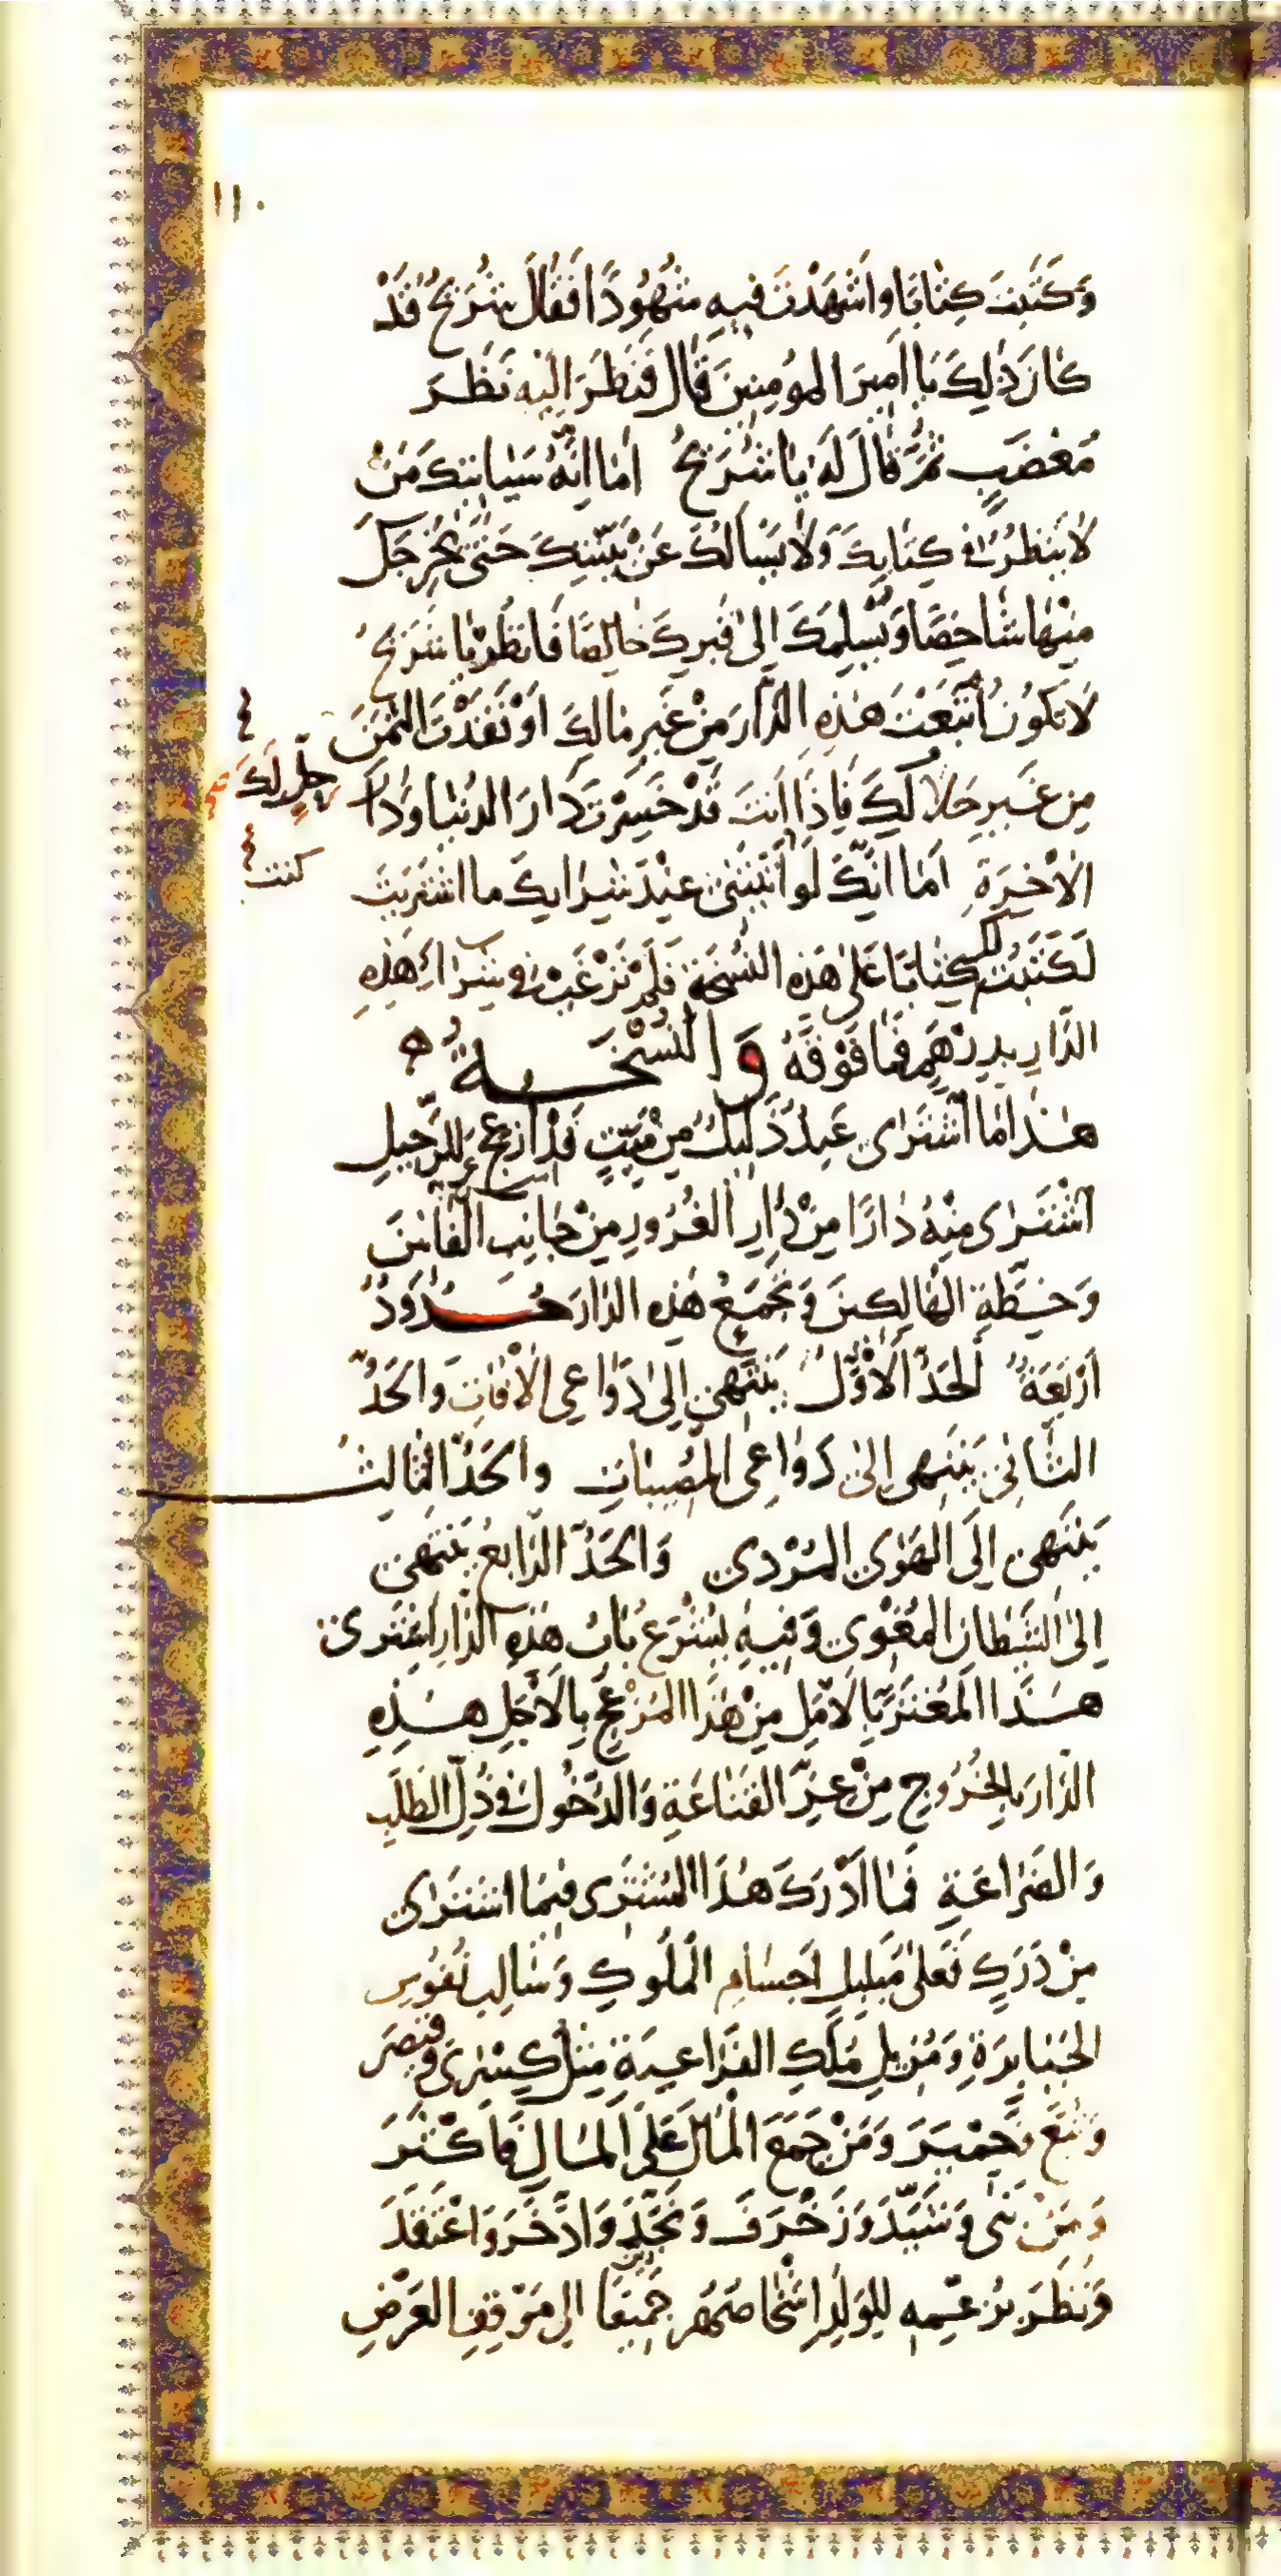 ١١٠
وَكَتَبْتَ كِتَابًا وَاَشْهَدْتَ فيهِ شُهُودًا فَقَالَ شُرَيْحٌ قَدْ
كانَ ذٰلِكَ يَا اَميرَ المُومِنينَ قَالَ فَنَظَرَ اِلَيْهِ نَظَرَ
مُغْضَبٍ ثُمَّ قَالَ لَهُ يَا شُرَيْحُ اَمَا اِنَّهُ سَيَاتيكَ مَنْ
لَا يَنْظُرُ في كِتَابِكَ وَلَا يَسْأَلُكَ عَنْ بَيِّنَتِكَ حَتّٰى يُخْرِجَكَ
مِنْهَا شَاخِصًا وَيُسْلِمَكَ اِلىٰ قَبْرِكَ خَالِصًا فَانْظُرْ يَا شُرَيْحُ
لَا تَكُونُ ابْتَعْتَ هٰذِهِ الدَّارَ مِنْ غَيْرِ مَالِكَ اَوْ نَقَدْتَ الثَّمَنَ
مِن غَيْرِ حَلَالِكَ فَاِذَا اَنْتَ قَدْ خَسِرْتَ دَارَ الدُنْيَا وَدَارَ
حِلٍّ لَكَ
الْاٰخِرَةِ اَمَا اِنَّكَ لَوْ اَتَيْتَنى عِنْدَ شِرَايِكَ ما اشْتَرَيْتَ
كنت
لَكَتَبْتُ لك كِتَابًا عَلىٰ هٰذِهِ النُّسْخَةِ فَلَمْ تَرْغَبْ في شِرَاءِ هٰذِهِ
الدَّارِ بِدِرْهَمٍ فَمَا فَوْقَهُ وَالنُّسْخَةُ ه
هٰذَا مَا اشْتَرىٰ عَبْدٌ ذَليلٌ مِنْ مَيِّتٍ قَدْ اُزْعِجَ لِلرَّحيلِ
اشْتَرىٰ مِنْهُ دَارًا مِنْ دَارِ الْغُرُورِ مِنْ جَانِبِ الْفَانينَ
وَخِطَّةِ الْهَالِكينَ وَتَجْمَعُ هٰذِهِ الدَّارَ حُدُودٌ
اَرْبَعَةٌ اَلْحَدُّ الْاَوَّلُ يَنْتَهى اِلىٰ دَوَاعِى الْاٰفَاتِ وَالْحَدُّ
الثَّانى يَنْتَهى اِلىٰ دَوَاعِى الْمُصيبَاتِ وَالْحَدُّ الثَّالِثُ
يَنْتَهى اِلَى الْهَوَى الْمُرْدى وَالْحَدُّ الرَّابِعُ يَنْتَهى
اِلىَ الشَّيْطَانِ الْمُغْوى وَفيهِ يُشْرَعُ بَابُ هٰذِهِ الدَّارِ اشْتَرىٰ
هٰذَا الْمُغْتَرُّ بِالْاَمَلِ مِنْ هٰذَا الْمُزْعَجِ بِالْاَجَلِ هٰذِهِ
الدَّارَ بِالْخُرُوجِ مِنْ عِزِّ الْقَنَاعَةِ وَالدُّخُولِ فى ذُلِّ الطَّلَبِ
وَالضَّرَاعَةِ فَمَا اَدْرَكَ هٰذَا الْمُشْتَرى فيمَا اشْتَرىٰ
مِنْ دَرَكٍ فَعَلىٰ مُبَلْبِلِ اَجْسَامِ الْمُلُوكِ وَسَالِبِ نُفُوسِ
الْجَبَابِرَةِ وَمُزيلِ مُلْكِ الْفَرَاعِنَةِ مِثْلِ كِسْرىٰ وَقَيْصَرَ
وَتُبَّعٍ وَحِمْيَرَ وَمَنْ جَمَعَ الْمَالَ عَلَى الْمَالِ فَاَكْثَرَ
وَمَنْ بَنىٰ وَشَيَّدَ وَزَخْرَفَ وَنَجَّدَ وَادَّخَرَ وَاعْتَقَدَ
وَنَظَرَ بِزَعْمِهِ لِلْوَلَدِ اِشْخَاصُهُمْ جَميعًا اِلىٰ مَوْقِفِ الْعَرْضِ